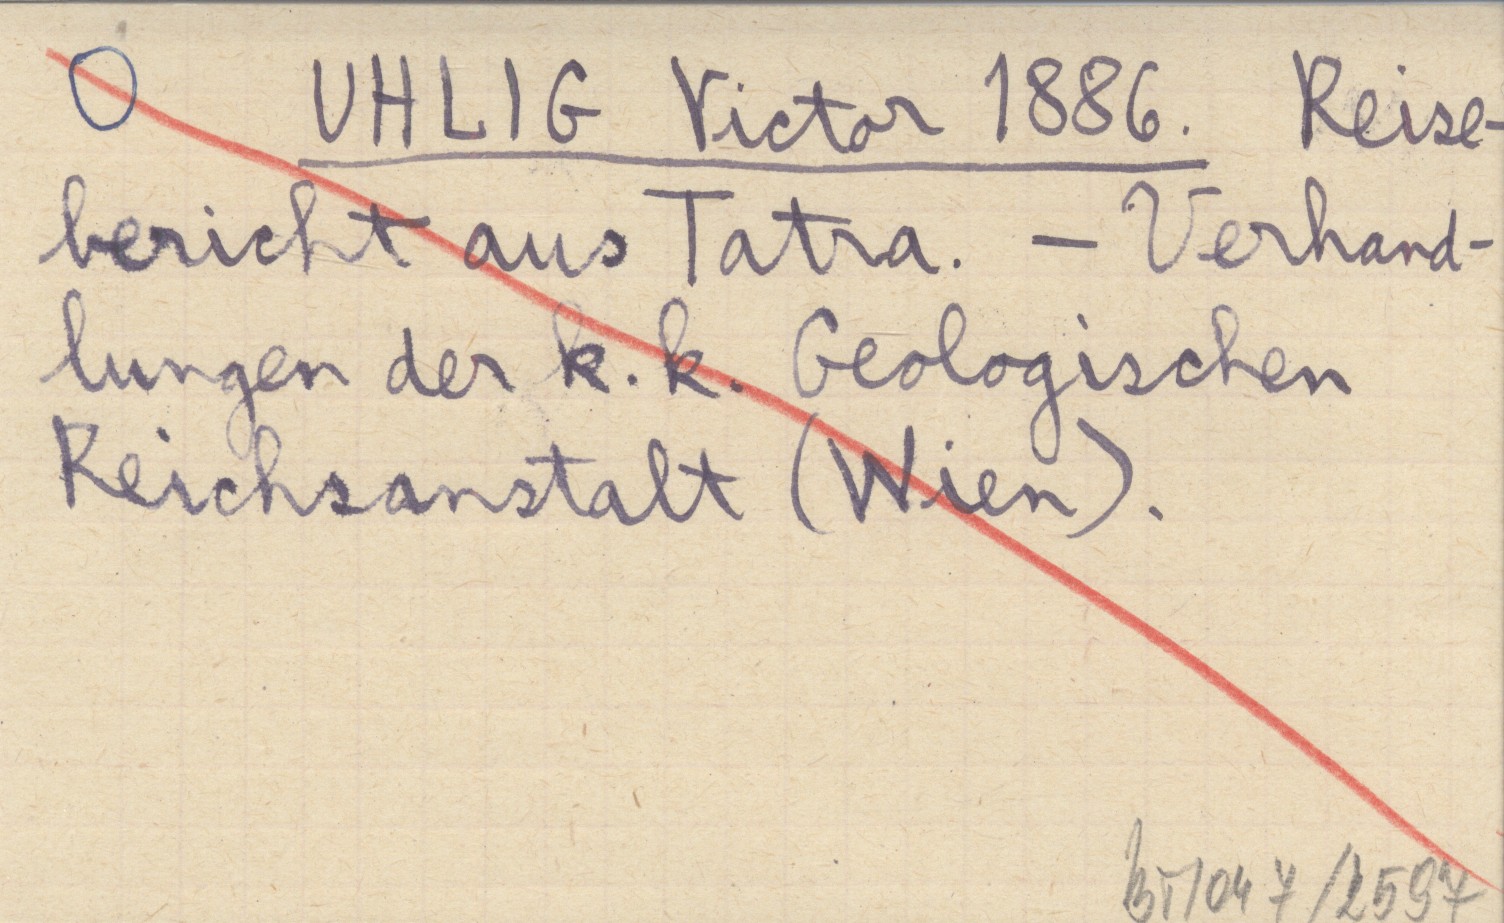 O UHLIG Victor 1886. Reise-
bericht aus Tatra. – Verhand-
lungen der k. k. Geologischen
Reichsanstalt (Wien).
BT/047/2597